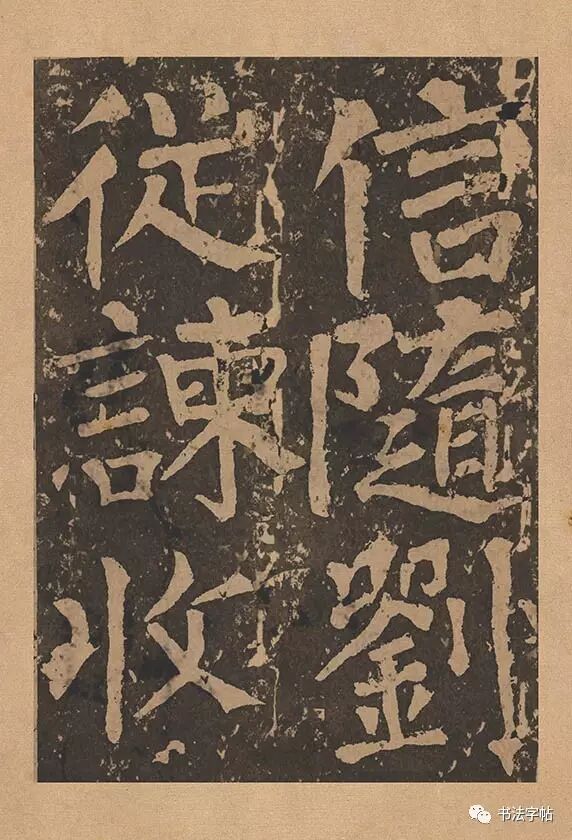 信隨劉
從諫收
书法字帖